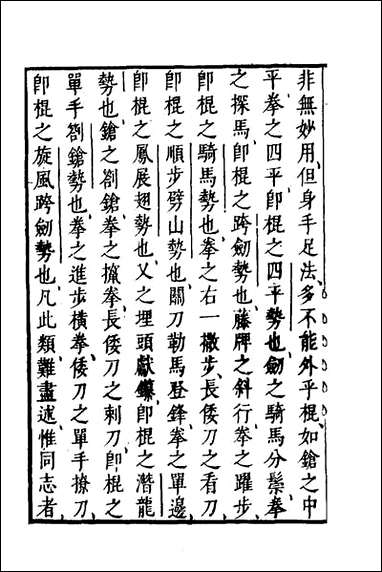 非無妙用但身手足法多不能外乎棍如鎗之中
平拳之四平即棍之四平勢也劒之騎馬分鬃拳
之探馬即棍之跨劒勢也藤牌之斜行拳之躍步
即棍之騎馬勢也拳之右一撒步長倭刀之看刀
即棍之順步劈山勢也關刀勒馬登鋒拳之單邊
即棍之鳳展翅勢也又之埋頭獻鑽即棍之潛龍
勢也鎗之劄鎗拳之攛拳長倭刀之刺刀即棍之
單手劄鎗勢也拳之進步橫拳倭刀之單手撩刀
即棍之旋風跨劒勢也凡此類難盡述惟同志者